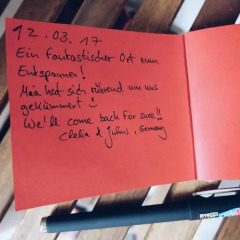 12.03.17
Ein fantastischer Ort zum
Entspannen!
hat sich rührend um uns
gekümmert
We'll come back for sure!!
Clelia & Julius, Germany